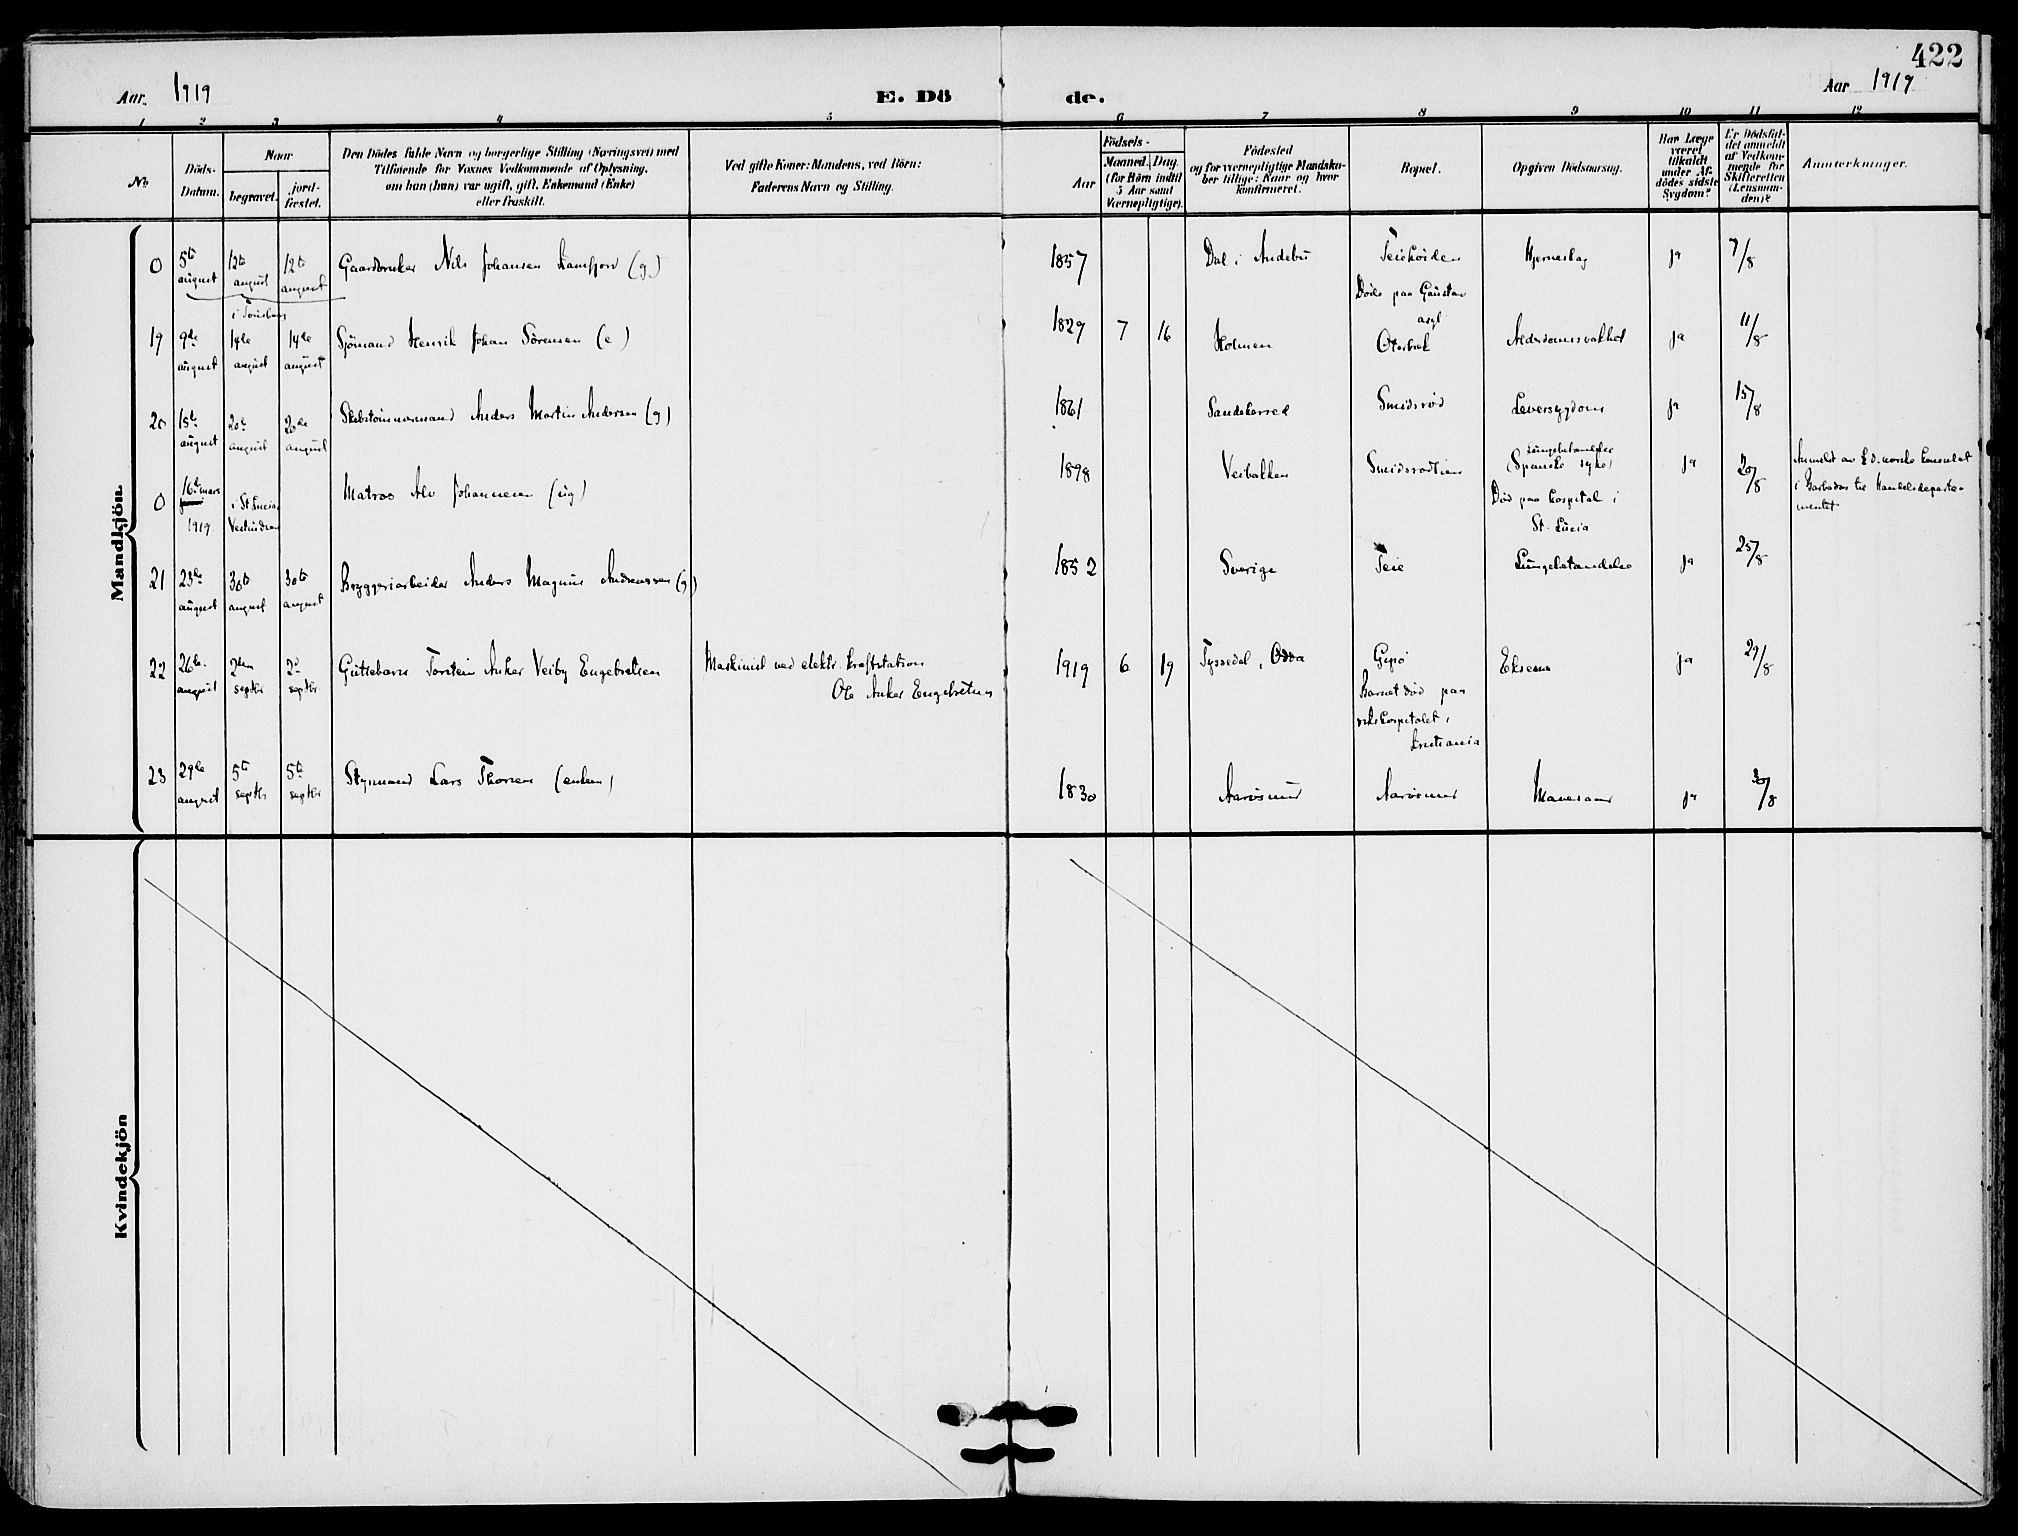 422
Aar. 1919
E. Dö de.
Aar 1919
1 2 3 4 5 6 7 8 9 10 11 12
No.
Döds-
Datum.
Naar
begravet.
jord-
fæstet.
Den Dödes fulde Navn og borgerlige Stilling (Næringsvei) med
Tilföiende for Voxnes Vedkommende af Oplysning,
om han (hun) var ugift, gift, Enkemand (Enke)
eller fraskilt.
Ved gifte Koner: Mandens, ved Börn:
Faderens Navn og Stilling.
Födsels-
Aar
Maaned. Dag.
(for Börn indtil
5 Aar samt
Værnepligtige).
Födested
og for værnepligtige Mandska-
ber tillige: Naar og hvor
konfirmeret.
Bopæl.
Opgiven Dödsaarsag.
Har Læge
været
tilkaldt
under Af-
dödes sidste
Sygdom?
Er Dödsfal-
det anmeldt
af Vedkom-
mende for
Skifteretten
(Lensman-
den)?
Anmærkninger.
Mandkjön.
0 5te august 12te august 12te august Gaardbruker Nils Johansen Ramfjord (g.) 1857 Dal i Andebu Teiehøiden Hjerneslag ja 7/8
i Tønsberg
Døde paa Gaustad
asyl
19 9de august 14de august 14de august Sjømand Henrik Johan Sörensen (e) 1829 7 16 Holmen Oterbæk Alderdomssvakhet ja 11/8
20 15de august 20de august 20de august Skibstømmermand Anders Martin Andersen (g) 1861 Sandeherred Smidsrød Leversygdom ja 15/8
0 16de mars 1919 i St Lucia Vestindien Matros Alv Johannesen (ug) 1898 Veibakken Smidsrødveien Lungebetændelse
(Spanske syke) ja 20/8 Anmeldt av d. norske konsulat
i Barbados til Handelsdeparte-
mentet
Død paa hospital i
St. Lucia
21 23de august 30te august 30te august Bryggeriarbeider Anders Magnus Andreassen (g) 1852 Sverige Teie Lungebetændelse ja 25/8
22 26de august 2den septbr 2den septbr Guttebarn Torstein Anker Veiby Engebretsen Maskinist ved elektr. kraftstation
Ole Anker Engebretsen 1919 6 19 Tyssedal i Odda Gipø Eksem ja 29/8
Barnet død paa
rikshospitalet i
Kristiania
23 29de august 5te septbr 5te septbr Styrmand Lars Thorsen (enkem) 1830 Aarøsund Aarøsund Mavesaar ja 30/8
Kvindekjön